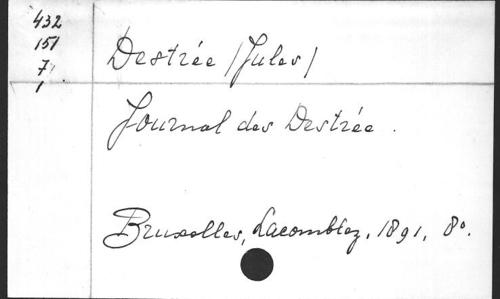 432
151
7
1
Destrée (Jules)
Journal des Destrée.
Bruxelles, Lacomblez, 1891, 8º.